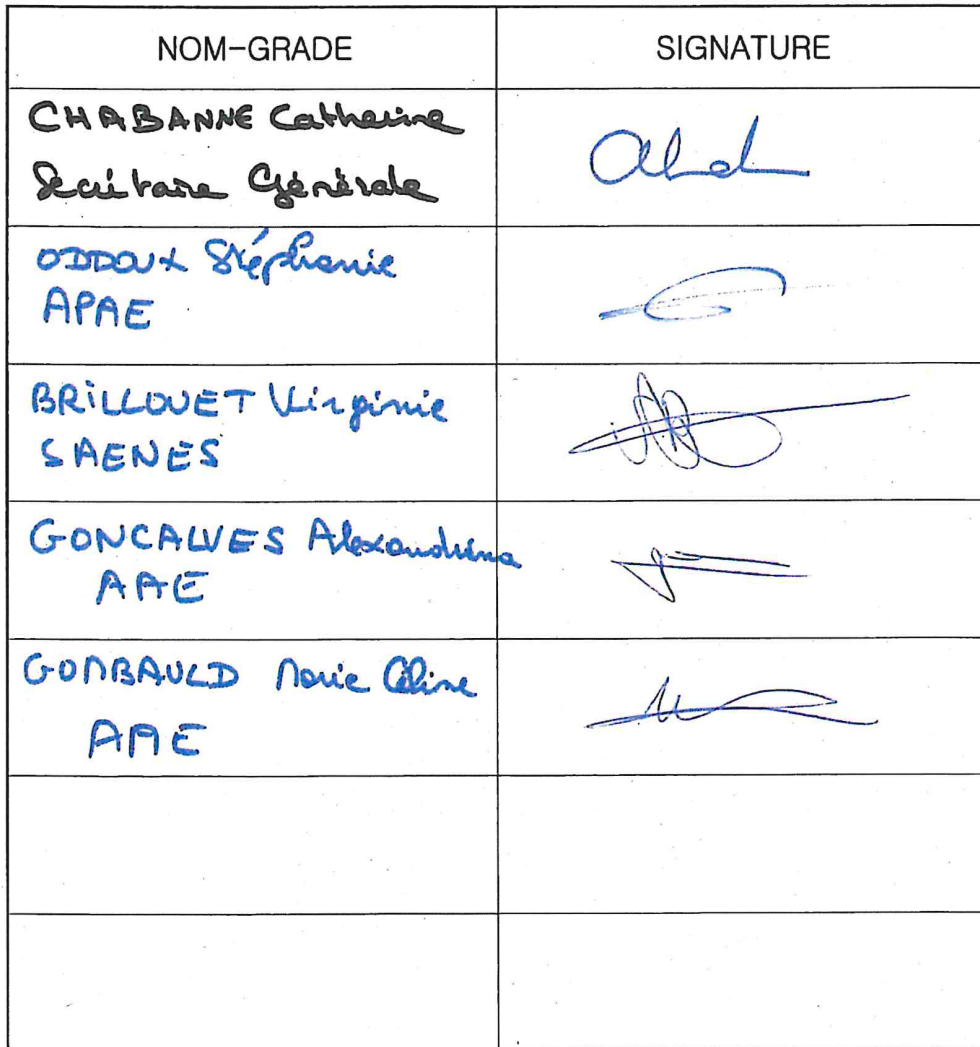 NOM-GRADE SIGNATURE
CHABANNE Catherine
Secrétaire Générale
ODDOUX Stéphanie
APAE
BRILLOUET Virginie
SAENES
GONCALVES Alexandrina
AAE
GOMBAULD Marie Céline
AAE